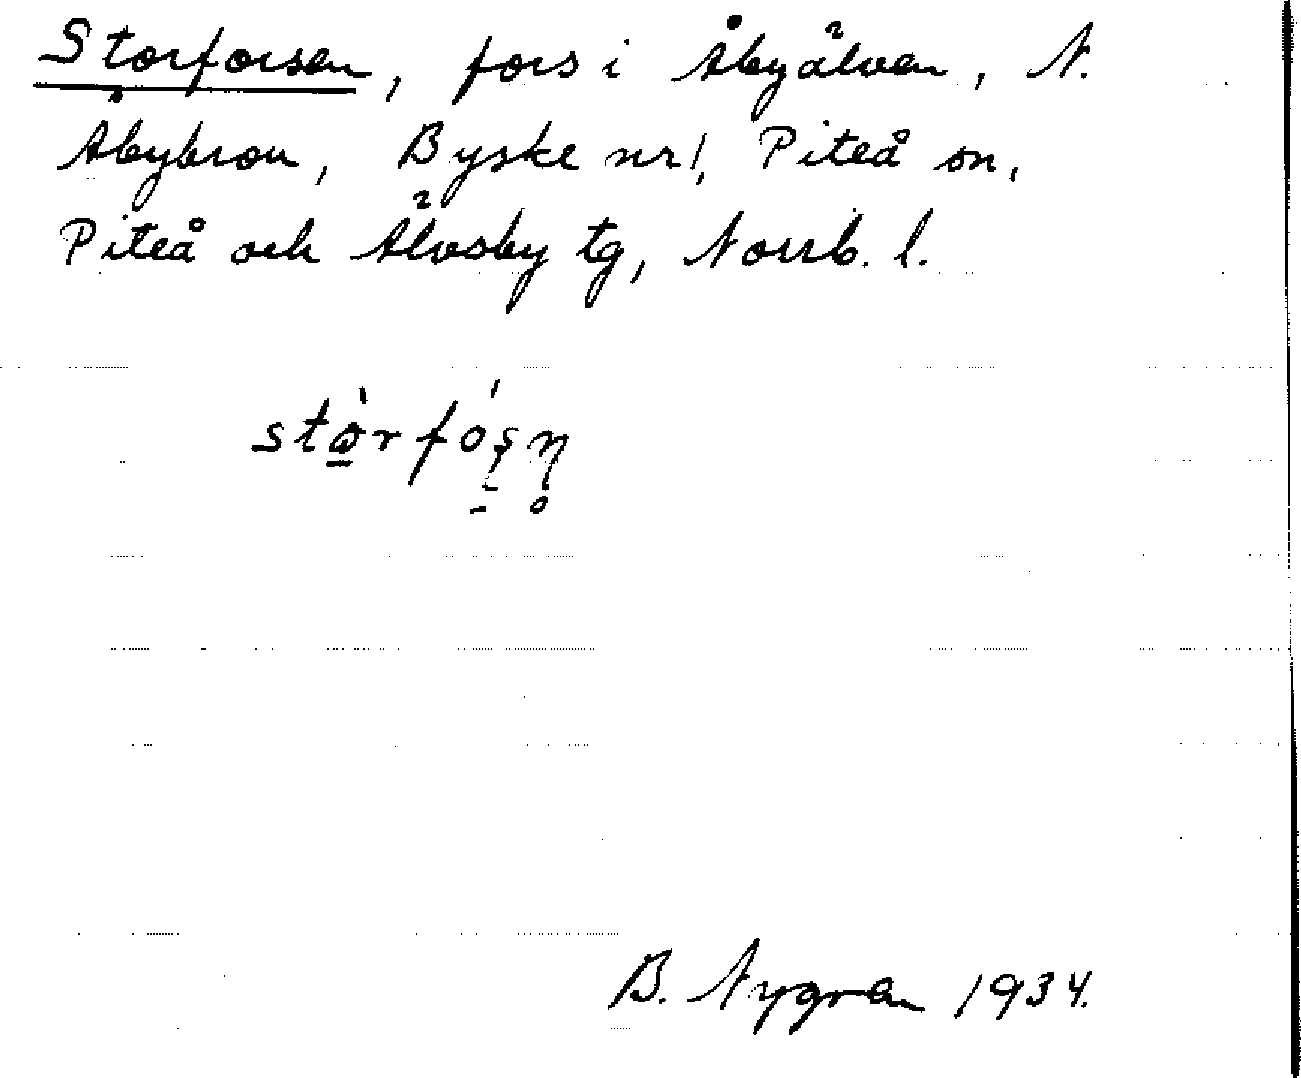 Storforsen, fors i Åbyälven, N.
Åbybron, Byske nr 1, Piteå sn,
Piteå och Älvsby tg, Norrb. l.
stò̲rfóṣn̥
B. Nygren 1934.